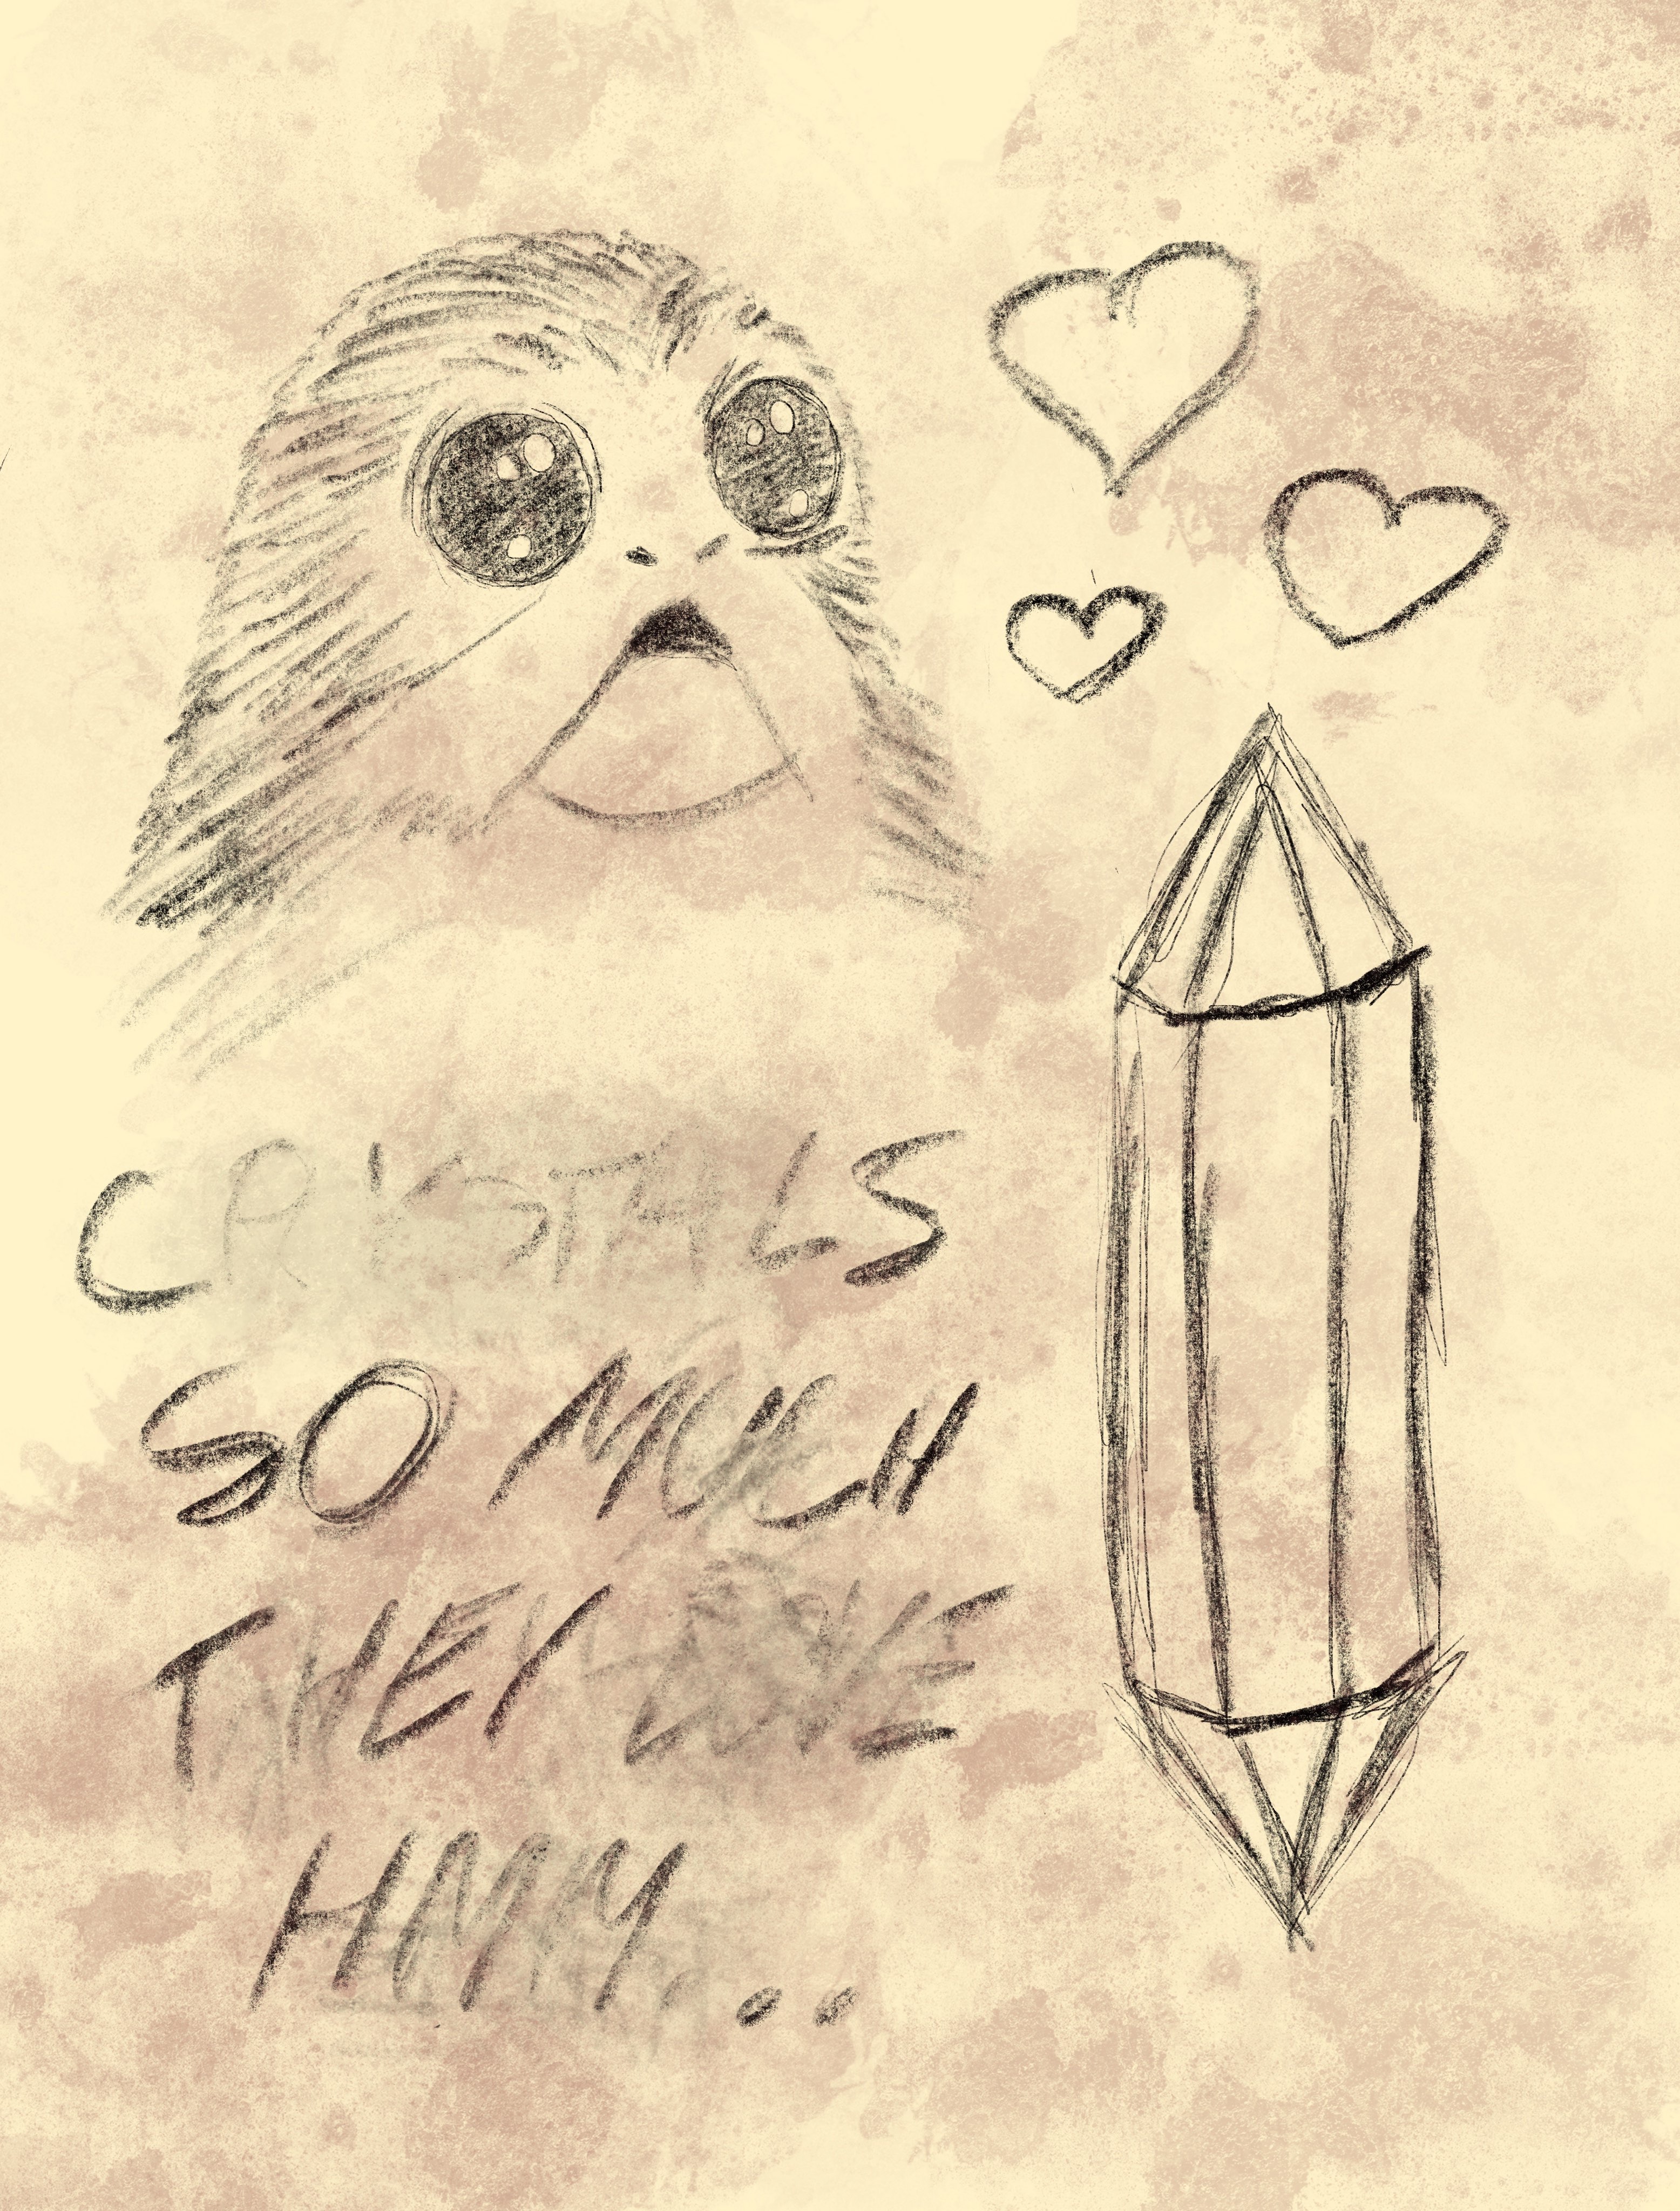 CRYSTALS
SO MUCH
THEY LOVE
HMM...